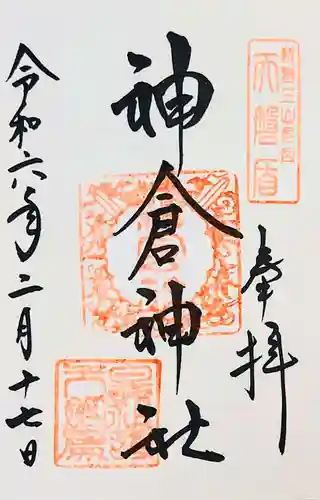 奉拝
神倉神社
令和六年二月十七日
天磐盾